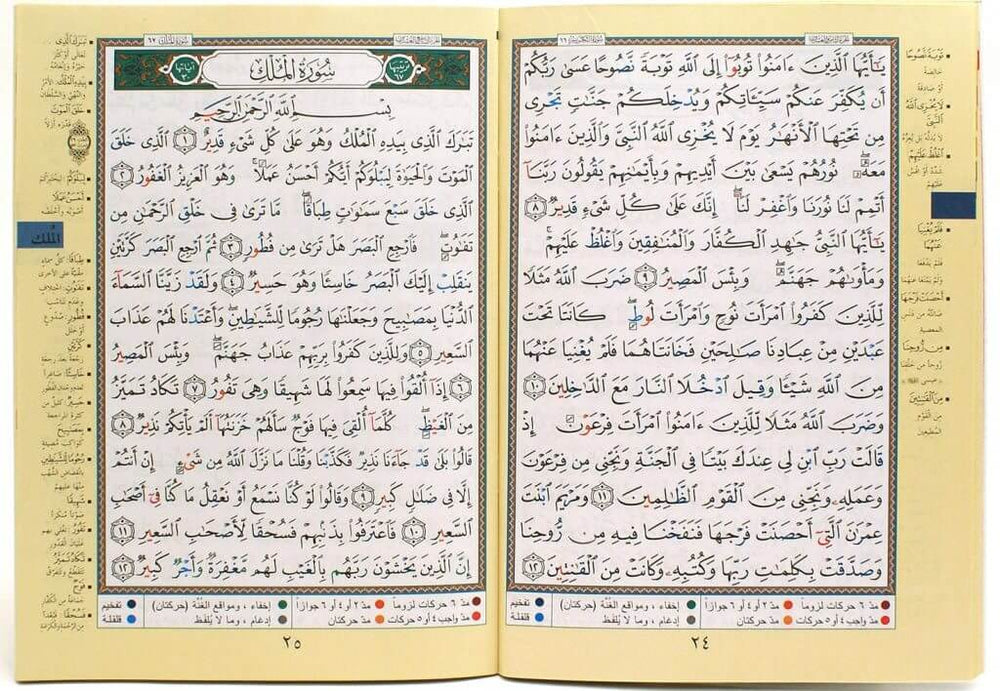 يَـٰٓأَيُّهَا ٱلَّذِينَ ءَامَنُوا۟ تُوبُوٓا۟ إِلَى ٱللَّهِ تَوْبَةً نَّصُوحًا عَسَىٰ رَبُّكُمْ
أَن يُكَفِّرَ عَنكُمْ سَيِّـَٔاتِكُمْ وَيُدْخِلَكُمْ جَنَّـٰتٍ تَجْرِى
مِن تَحْتِهَا ٱلْأَنْهَـٰرُ يَوْمَ لَا يُخْزِى ٱللَّهُ ٱلنَّبِىَّ وَٱلَّذِينَ ءَامَنُوا۟
مَعَهُۥ ۖ نُورُهُمْ يَسْعَىٰ بَيْنَ أَيْدِيهِمْ وَبِأَيْمَـٰنِهِمْ يَقُولُونَ رَبَّنَآ
أَتْمِمْ لَنَا نُورَنَا وَٱغْفِرْ لَنَآ ۖ إِنَّكَ عَلَىٰ كُلِّ شَىْءٍ قَدِيرٌ ٨
يَـٰٓأَيُّهَا ٱلنَّبِىُّ جَـٰهِدِ ٱلْكُفَّارَ وَٱلْمُنَـٰفِقِينَ وَٱغْلُظْ عَلَيْهِمْ ۚ
وَمَأْوَىٰهُمْ جَهَنَّمُ ۖ وَبِئْسَ ٱلْمَصِيرُ ٩ ضَرَبَ ٱللَّهُ مَثَلًا
لِّلَّذِينَ كَفَرُوا۟ ٱمْرَأَتَ نُوحٍ وَٱمْرَأَتَ لُوطٍ ۖ كَانَتَا تَحْتَ
عَبْدَيْنِ مِنْ عِبَادِنَا صَـٰلِحَيْنِ فَخَانَتَاهُمَا فَلَمْ يُغْنِيَا عَنْهُمَا
مِنَ ٱللَّهِ شَيْـًٔا وَقِيلَ ٱدْخُلَا ٱلنَّارَ مَعَ ٱلدَّٰخِلِينَ ١٠
وَضَرَبَ ٱللَّهُ مَثَلًا لِّلَّذِينَ ءَامَنُوا۟ ٱمْرَأَتَ فِرْعَوْنَ إِذْ
قَالَتْ رَبِّ ٱبْنِ لِى عِندَكَ بَيْتًا فِى ٱلْجَنَّةِ وَنَجِّنِى مِن فِرْعَوْنَ
وَعَمَلِهِۦ وَنَجِّنِى مِنَ ٱلْقَوْمِ ٱلظَّـٰلِمِينَ ١١ وَمَرْيَمَ ٱبْنَتَ
عِمْرَٰنَ ٱلَّتِىٓ أَحْصَنَتْ فَرْجَهَا فَنَفَخْنَا فِيهِ مِن رُّوحِنَا
وَصَدَّقَتْ بِكَلِمَـٰتِ رَبِّهَا وَكُتُبِهِۦ وَكَانَتْ مِنَ ٱلْقَـٰنِتِينَ ١٢
تَوْبَةً نَّصُوحًا
خالصة
أو صادقة
لَا يُخْزِى ٱللَّهُ
ٱلنَّبِىَّ
ٱغْلُظْ عَلَيْهِمْ
فَلَمْ يُغْنِيَا
عَنْهُمَا
أَحْصَنَتْ فَرْجَهَا
مِن رُّوحِنَا
مِنَ ٱلْقَـٰنِتِينَ
من القوم
المطيعين
مدّ ٦ حركات لزوماً مدّ ٢ أو ٤ أو ٦ جوازاً إخفاء ، ومواقع الغُنَّة (حركتان) تفخيم
مدّ واجب ٤ أو ٥ حركات مدّ حركتان إدغام ، وما لا يُلفَظ قلقلة
٢٤
سُورَةُ المُلْك ٦٧
ترتيبها ٦٧ سُورَةُ المُلْكِ آياتها ٣٠
بِسْمِ ٱللَّهِ ٱلرَّحْمَـٰنِ ٱلرَّحِيمِ
تَبَـٰرَكَ ٱلَّذِى بِيَدِهِ ٱلْمُلْكُ وَهُوَ عَلَىٰ كُلِّ شَىْءٍ قَدِيرٌ ١ ٱلَّذِى خَلَقَ
ٱلْمَوْتَ وَٱلْحَيَوٰةَ لِيَبْلُوَكُمْ أَيُّكُمْ أَحْسَنُ عَمَلًا ۚ وَهُوَ ٱلْعَزِيزُ ٱلْغَفُورُ ٢
ٱلَّذِى خَلَقَ سَبْعَ سَمَـٰوَٰتٍ طِبَاقًا ۖ مَّا تَرَىٰ فِى خَلْقِ ٱلرَّحْمَـٰنِ مِن
تَفَـٰوُتٍ ۖ فَٱرْجِعِ ٱلْبَصَرَ هَلْ تَرَىٰ مِن فُطُورٍ ٣ ثُمَّ ٱرْجِعِ ٱلْبَصَرَ كَرَّتَيْنِ
يَنقَلِبْ إِلَيْكَ ٱلْبَصَرُ خَاسِئًا وَهُوَ حَسِيرٌ ٤ وَلَقَدْ زَيَّنَّا ٱلسَّمَآءَ
ٱلدُّنْيَا بِمَصَـٰبِيحَ وَجَعَلْنَـٰهَا رُجُومًا لِّلشَّيَـٰطِينِ ۖ وَأَعْتَدْنَا لَهُمْ عَذَابَ
ٱلسَّعِيرِ ٥ وَلِلَّذِينَ كَفَرُوا۟ بِرَبِّهِمْ عَذَابُ جَهَنَّمَ ۖ وَبِئْسَ ٱلْمَصِيرُ
٦ إِذَآ أُلْقُوا۟ فِيهَا سَمِعُوا۟ لَهَا شَهِيقًا وَهِىَ تَفُورُ ٧ تَكَادُ تَمَيَّزُ
مِنَ ٱلْغَيْظِ ۖ كُلَّمَآ أُلْقِىَ فِيهَا فَوْجٌ سَأَلَهُمْ خَزَنَتُهَآ أَلَمْ يَأْتِكُمْ نَذِيرٌ ٨
قَالُوا۟ بَلَىٰ قَدْ جَآءَنَا نَذِيرٌ فَكَذَّبْنَا وَقُلْنَا مَا نَزَّلَ ٱللَّهُ مِن شَىْءٍ إِنْ أَنتُمْ
إِلَّا فِى ضَلَـٰلٍ كَبِيرٍ ٩ وَقَالُوا۟ لَوْ كُنَّا نَسْمَعُ أَوْ نَعْقِلُ مَا كُنَّا فِىٓ أَصْحَـٰبِ
ٱلسَّعِيرِ ١٠ فَٱعْتَرَفُوا۟ بِذَنۢبِهِمْ فَسُحْقًا لِّأَصْحَـٰبِ ٱلسَّعِيرِ ١١
إِنَّ ٱلَّذِينَ يَخْشَوْنَ رَبَّهُم بِٱلْغَيْبِ لَهُم مَّغْفِرَةٌ وَأَجْرٌ كَبِيرٌ ١٢
تَبَـٰرَكَ ٱلَّذِى
بِيَدِهِ ٱلْمُلْكُ
خَلَقَ ٱلْمَوْتَ
لِيَبْلُوَكُمْ
أَحْسَنُ عَمَلًا
المُلك
طِبَاقًا
تَفَـٰوُتٍ
فُطُورٍ
كَرَّتَيْنِ
خَاسِئًا
حَسِيرٌ
بِمَصَـٰبِيحَ
رُجُومًا لِّلشَّيَـٰطِينِ
شَهِيقًا
تَفُورُ
تَكَادُ تَمَيَّزُ
فَوْجٌ
فَسُحْقًا
مدّ ٦ حركات لزوماً مدّ ٢ أو ٤ أو ٦ جوازاً إخفاء ، ومواقع الغُنَّة (حركتان) تفخيم
مدّ واجب ٤ أو ٥ حركات مدّ حركتان إدغام ، وما لا يُلفَظ قلقلة
٢٥